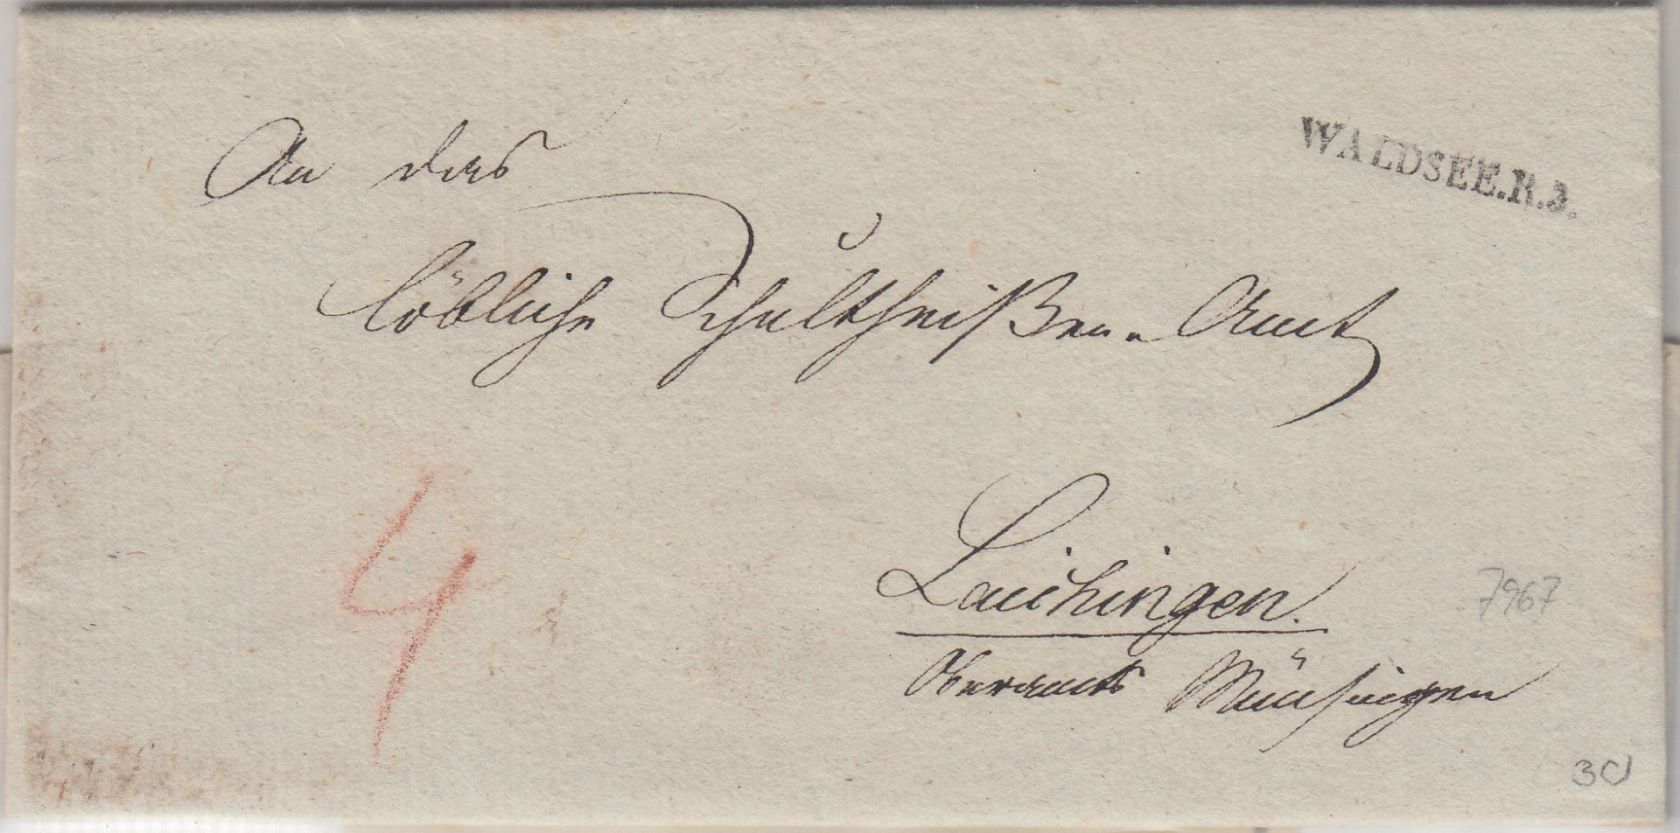 WALDSEE.R.3.
An das
löbliche Schultheißen-Amt
4
Laichingen.
Oberamts Münsingen
7967
30